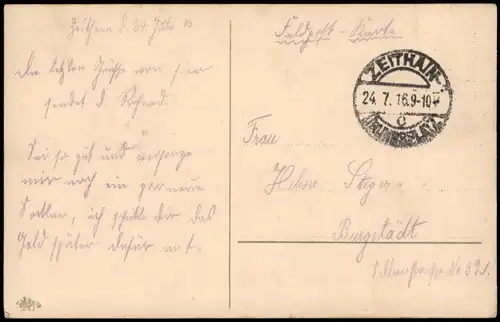 Zeithain d. 24. Juli 16.
Die letzten Grüße von hier
sendet d. Richard
Sei so gut und versorge
mir noch ein paar neue
Socken, ich schicke dir das
Geld später dafür mit.
Feldpost-Karte
ZEITHAIN
24. 7. 16. 9-10 V
c
TRUPPENÜBUNGSPLATZ
Frau
Helene Steger
Burgstädt
No 32